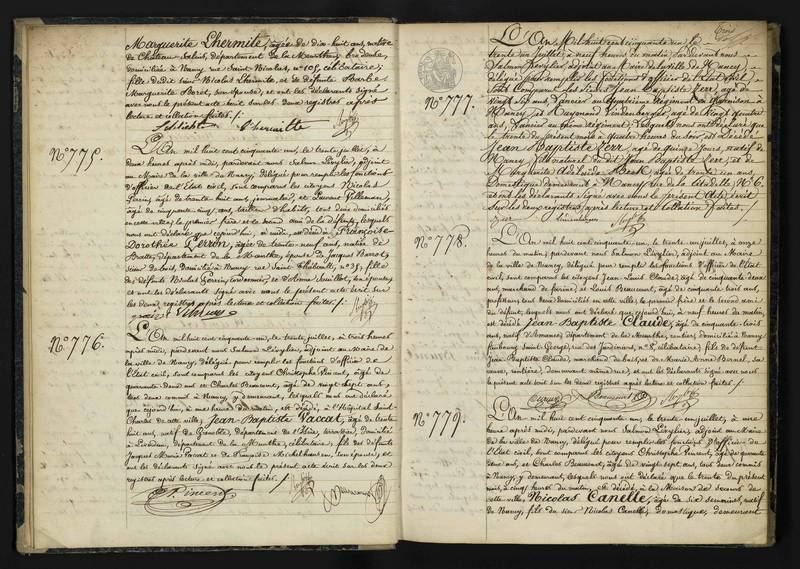 Marguerite Lhermite, agée de dix-huit ans, native
de Château-Salins, département de la Meurthe, brodeuse,
domiciliée à Nancy rue Saint-Nicolas, nº 105, célibataire,
fille du dit sieur Nicolas Lhermite, et de défunte Barbe
Marguerite son épouse; et ont les déclarants signé
avec nous le présent acte écrit sur les deux registres après
lecture et collation faites. /.
Lhermitte
Nº 775.
L'An mil huit cent cinquante-un, le trente juillet, à
deux heures après midi, pardevant nous Salmon Lévylier, adjoint
au Maire de la ville de Nancy, délégué pour remplir les fonctions
d'officier de l'Etat civil, sont comparus les citoyens Nicolas
Perrin, agé de trente-huit ans, et Laurent
agé de cinquante-cinq ans, tailleur d'habits, tous deux domiciliés
en cette ville, le premier frère et le second ami de la défunte, lesquels
nous ont déclaré que cejourd'hui, à midi, est décédée Françoise
Dorothée Perron, agée de trente-neuf ans, native de
département de la Meurthe, épouse de Jacques
domiciliée à Nancy rue Saint Thiébault, nº 35, fille
des défunts Nicolas cordonnier, et d'Anne son épouse;
et ont les déclarants signé avec nous le présent acte écrit sur
les deux registres après lecture et collation faites. /.
Nº 776.
L'An mil huit cent cinquante-un, le trente juillet, à trois heures
après midi, pardevant nous Salmon Lévylier, adjoint au Maire de
la ville de Nancy, délégué pour remplir les fonctions d'officier de
l'Etat civil, sont comparus les citoyens Christophe Vincent, agé de
quarante-deux ans et Charles Beaumont, agé de vingt-sept ans,
tous deux commis à Nancy, y demeurant, lesquels nous ont déclaré
que cejourd'hui, à une heure du matin, est décédé, à l'Hôpital Saint-
Charles de cette ville, Jean-Baptiste Vaccat, agé de trente-
huit ans, natif de Grenoble, département de l'Isère, terrassier, domicilié
à département de la Meurthe, célibataire, fils des défunts
Jacques Marie Vaccat et de Françoise son épouse; et
ont les déclarants signé avec nous le présent acte écrit sur les deux
registres après lecture et collation faites. /.
Vincent
Nº 777.
L'An Mil huit cent cinquante un le
trente un Juillet à neuf heures du matin Pardevant nous
Salmon Lévylier adjoint au Maire de la Ville de Nancy
délégué pour remplir les fonctions d'officier de l'Etat Civil
Sont Comparus les Sieurs Jean Baptiste Kerr, agé de
vingt six ans, Lancier au quatrième Régiment en Garnison à
Nancy, et Raymond agé de vingt quatre
ans, Lancier au même régiment Lesquels nous ont déclaré que
le trente du présent mois à quatre heures du soir est Décédé
Jean Baptiste Kerr agé de quinze Jours, natif de
Nancy, fils naturel du dit Jean Baptiste Kerr et de
Marguerite Adélaïde Beck agée de trente un ans,
Domestique demeurant à Nancy rue de la Citadelle Nº 6.
et ont les déclarants Signé avec nous le présent acte écrit
sur les deux registres après lecture et Collation faites.
Nº 778.
L'An mil huit cent cinquante-un, le trente-un juillet, à onze
heures du matin, pardevant nous Salmon Lévylier, adjoint au Maire
de la ville de Nancy, délégué pour remplir les fonctions d'officier de l'Etat
civil, sont comparus les citoyens Jean Louis Claude, agé de cinquante deux
ans, marchand de farine, et Louis Beaumont, agé de cinquante trois ans,
tous deux domiciliés en cette ville, le premier frère et le second ami
du défunt, lesquels nous ont déclaré que cejourd'hui, à neuf heures du matin,
est décédé Jean-Baptiste Claude, agé de cinquante-trois
ans, natif d' département de la Meurthe, rentier, domicilié à Nancy
faubourg Saint-Georges, rue des Jardiniers, nº 8, célibataire, fils de défunt
Jean Baptiste Claude, marchand de bois, et de Marie Anne sa
veuve, rentière, demeurant même rue; et ont les déclarants signé avec nous
le présent acte écrit sur les deux registres après lecture et collation faites. /.
Beaumont
Nº 779.
L'An mil huit cent cinquante-un, le trente-un juillet, à une
heure après midi, pardevant nous Salmon Lévylier, adjoint au Maire
de la ville de Nancy, délégué pour remplir les fonctions d'officier de
l'Etat civil, sont comparus les citoyens Christophe Vincent, agé de quarante-
deux ans, et Charles Beaumont, agé de vingt-sept ans, tous deux commis
à Nancy, y demeurant, lesquels nous ont déclaré que le trente du présent
mois, à cinq heures du matin, est décédé, à la Maison de secours de
cette ville, Nicolas Canelle, agé de dix semaines, natif
de Nancy, fils du sieur Nicolas Canelle, domestique, demeurant